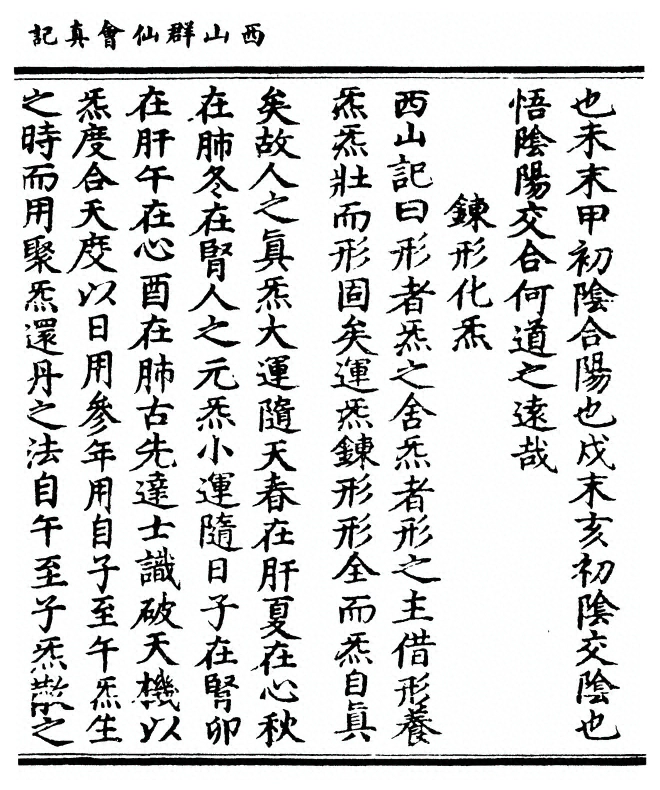 西山群仙會真記
也未末甲初陰合陽也戌末亥初陰交陰也
悟陰陽交合何道之遠哉
鍊形化炁
西山記曰形者炁之舍炁者形之主借形養
炁炁壯而形固矣運炁鍊形形全而炁自眞
矣故人之眞炁大運隨天春在肝夏在心秋
在肺冬在腎人之元炁小運隨日子在腎卯
在肝午在心酉在肺古先達士識破天機以
炁度合天度以日用參年用自子至午炁生
之時而用聚炁還丹之法自午至子炁散之